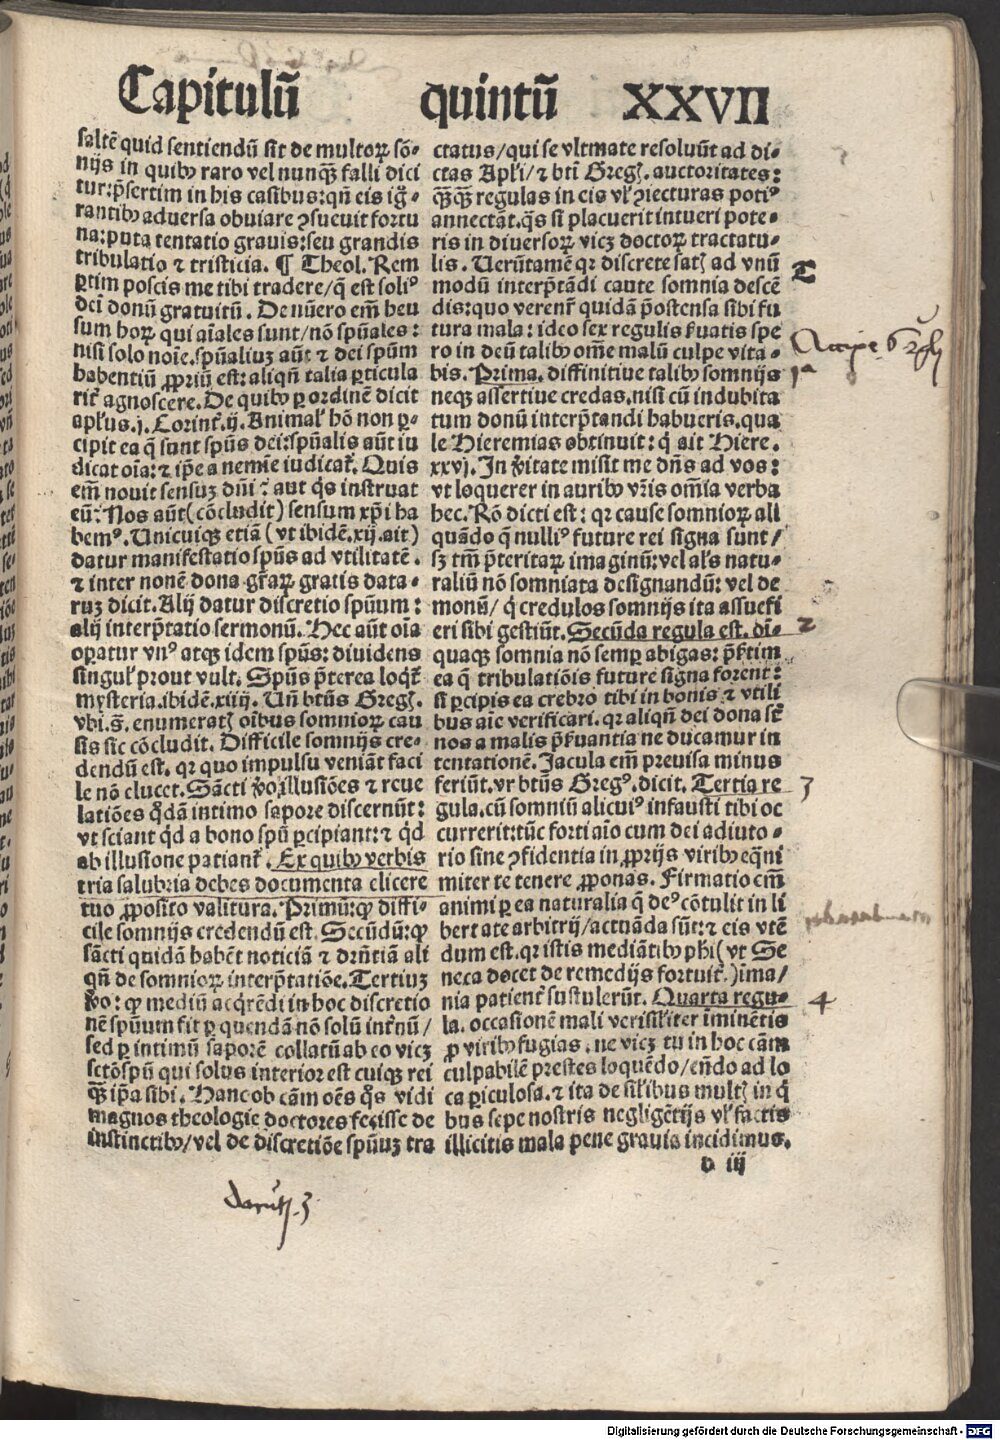 Capitulū quintū XXVII
saltē quid sentiendū sit de multoꝝ sō-
nijs in quibꝰ raro vel nunqꝫ falli dici
tur: p̄sertim in his casibus: qn̄ eis iḡ-
rantibꝰ aduersa obuiare ꝯsueuit fortu
na: puta tentatio grauis: seu grandis
tribulatio ⁊ tristicia. ¶ Theol. Rem
ꝑtim poscis me tibi tradere/ q̄ est soliꝰ
dei donū gratuitū. De nūero em̄ heu
sum hoꝝ qui aīales sunt/ nō spūales:
nisi solo noīe. spūaliuꝫ aūt ⁊ dei spūm
habentiū ꝓpriū est: aliqn̄ talia ꝑticula
rit̄ agnoscere. De quibꝰ ꝑ ordinē dicit
apl'us .j. Corint̄. ij. Animal' hō non ꝑ-
cipit ea q̄ sunt spūs dei: spūalis aūt iu
dicat oīa: ⁊ ip̄e a nemīe iudicat̄. Quis
em̄ nouit sensuꝫ dn̄i? aut q̇s instruat
eū? Nos aūt (cōcludit) sensum xp̄i ha
bemꝰ. Unicuiqꝫ etiā (vt ibidē .xij. ait)
datur manifestatio spūs ad vtilitatē.
⁊ inter nonē dona gr̄aꝝ gratis data-
ruꝫ dicit. Alij datur discretio spūum:
alij interp̄tatio sermonū. Hec aūt oīa
oꝑatur vnꝰ atqꝫ idem spūs: diuidens
singul' prout vult. Spūs p̄terea loqt̄
mysteria. ibidē .xiiij. Un̄ btūs Greg.
vbi .s. enumeratꝭ oībus somnioꝝ cau
sis sic cōcludit. Difficile somnijs cre-
dendū est. qꝛ quo impulsu veniāt faci
le nō elucet. Sācti v̄o illusiōes ⁊ reue
latiōes q̄dā intimo sapore discernūt:
vt sciant qd̄ a bono spū ꝑcipiant: ⁊ qd̄
ab illusione patiant̄. Ex quibꝰ verbis
tria salubria debes documenta elicere
tuo ꝓposito valitura. Primū: ꝙ diffi-
cile somnijs credendū est. Secūdū: ꝙ
sācti quidā habēt noticiā ⁊ dr̄ntiā ali
qn̄ de somnioꝝ interp̄tatiōe. Tertiuꝫ
v̄o: ꝙ mediū acq̇rēdi in hoc discretio
nē spūum fit ꝑ quendā nō solū int̄nū/
sed ꝑ intimū saporē collatū ab eo vicꝫ
sctōspū qui solus interior est cuiqꝫ rei
qꝫ ip̄a sibi. Hanc ob cām oēs q̇s vidi
magnos theologie doctores fecisse de
instinctibꝰ/ vel de discretiōe spūuꝫ tra
ctatus/ qui se vltimate resoluūt ad di-
ctas Apl'i/ ⁊ bti Greg. auctoritates:
qꝫqꝫ regulas in eis vl' ꝯiecturas potiꝰ
annectāt. q̇s si placuerit intueri pote-
ris in diuersoꝝ vicꝫ doctoꝝ tractatu-
lis. Uerūtamē qꝛ discrete satꝭ ad vnū
modū interp̄tādi caute somnia descē
dis: quo verent̄ quidā p̄ostensa sibi fu
tura mala: ideo sex regulis ẜuatis spe
ro in deū talibꝰ omē malū culpe vita-
bis. Prima. diffinitiue talibꝰ somnijs
neqꝫ assertiue credas. nisi cū indubita
tum donū interp̄tandi habueris. qua
le Hieremias obtinuit: q̇ ait Hiere.
xxvj. In v̄itate misit me dn̄s ad vos:
vt loquerer in auribꝰ vr̄is om̄ia verba
hec. Rō dicti est: qꝛ cause somnioꝝ ali
quādo q̄ nulliꝰ future rei signa sunt/
sꝫ tm̄ p̄teritaꝝ imaginū: vel al's natu-
raliū nō somniata designandū: vel de
monū/ q̇ credulos somnijs ita assuefi
eri sibi gestiūt. Secūda regula est. dī-
quaqꝫ somnia nō semꝑ abigas: p̄ẜtim
ea q̄ tribulatiōis future signa forent:
si ꝑcipis ea crebro tibi in bonis ⁊ vtili
bus aīe verificari. qꝛ aliqn̄ dei dona st̄
nos a malis p̄ẜuantia ne ducamur in
tentationē. Jacula em̄ preuisa minus
feriūt. vt btūs Gregꝰ. dicit. Tertia re
gula. cū somniū alicuiꝰ infausti tibi oc
currerit: tūc forti aīo cum dei adiuto-
rio sine ꝯfidentia in ꝓprijs viribꝰ eq̄ni
miter te tenere ꝓponas. Firmatio em̄
animi ꝑ ea naturalia q̄ deꝰ cōtulit in li
bertate arbitrij/ actuāda sūt: ⁊ eis vtē
dum est. qꝛ istis mediātibꝰ ph̄i (vt Se
neca docet de remedijs fortuit̄.) īma/
nia patient̄ sustulerūt. Quarta regu-
la. occasionē mali verisil'iter īminētis
ꝓ viribꝰ fugias. ne vicꝫ tu in hoc cām
culpabilē prestes loquēdo/ eūdo ad lo
ca ꝑiculosa. ⁊ ita de sil'ibus multꝭ in q̇
bus sepe nostris negligētijs vl' factis
illicitis mala pene grauis incidimus.
T
Accipe 6 rg̃l
1ª
2
3
4
d iij
Digitalisierung gefördert durch die Deutsche Forschungsgemeinschaft - DFG